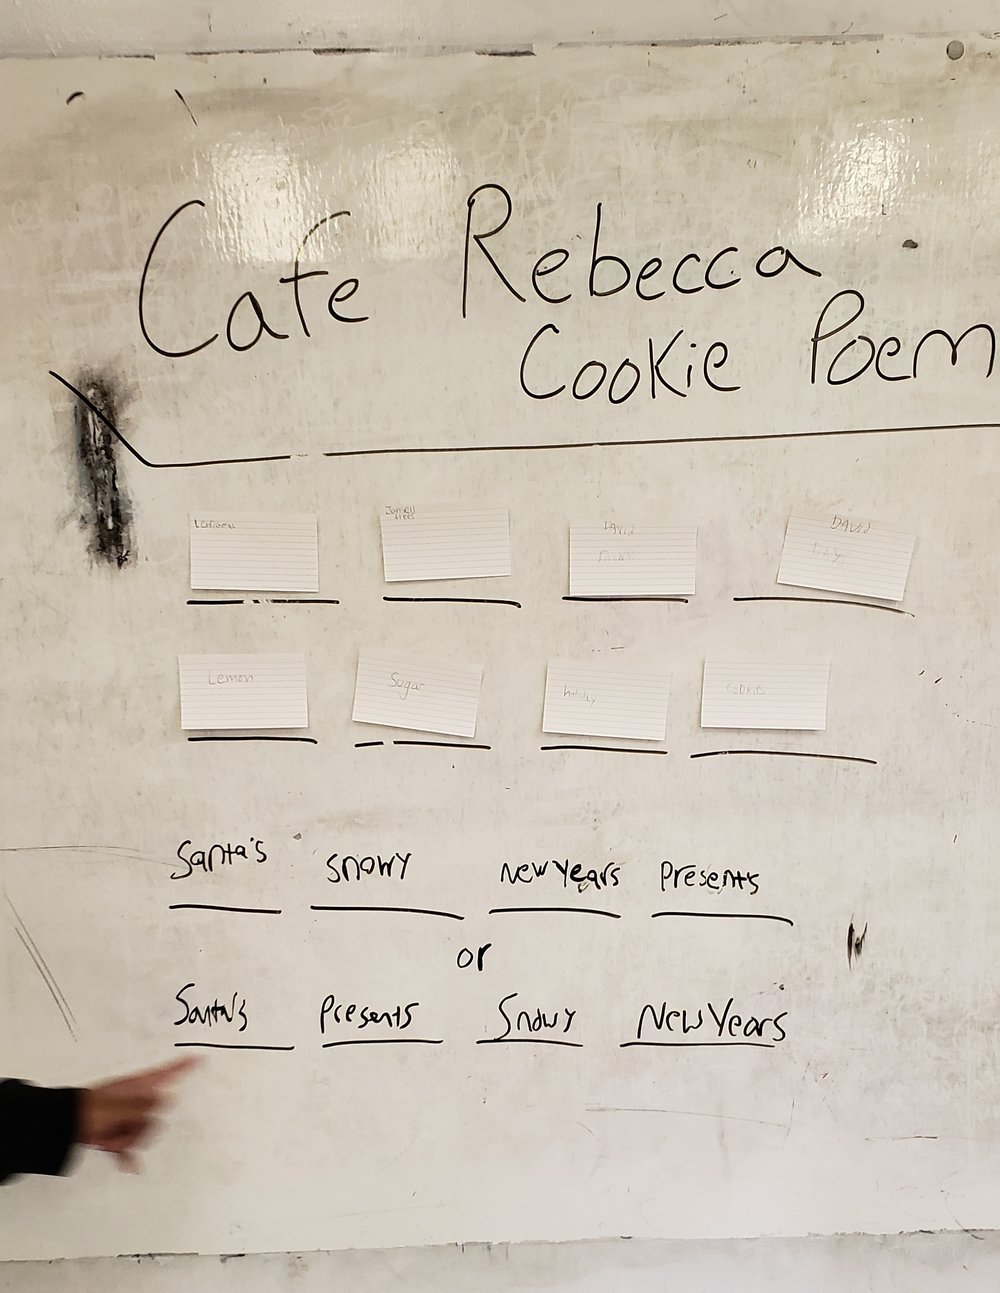 Cafe Rebecca
Cookie Poem
Christmas
trees
DAVID DAVID
Lemon Sugar holiday Cookies
Santa's snowy New Years Presents
or
Santa's Presents Snowy New Years